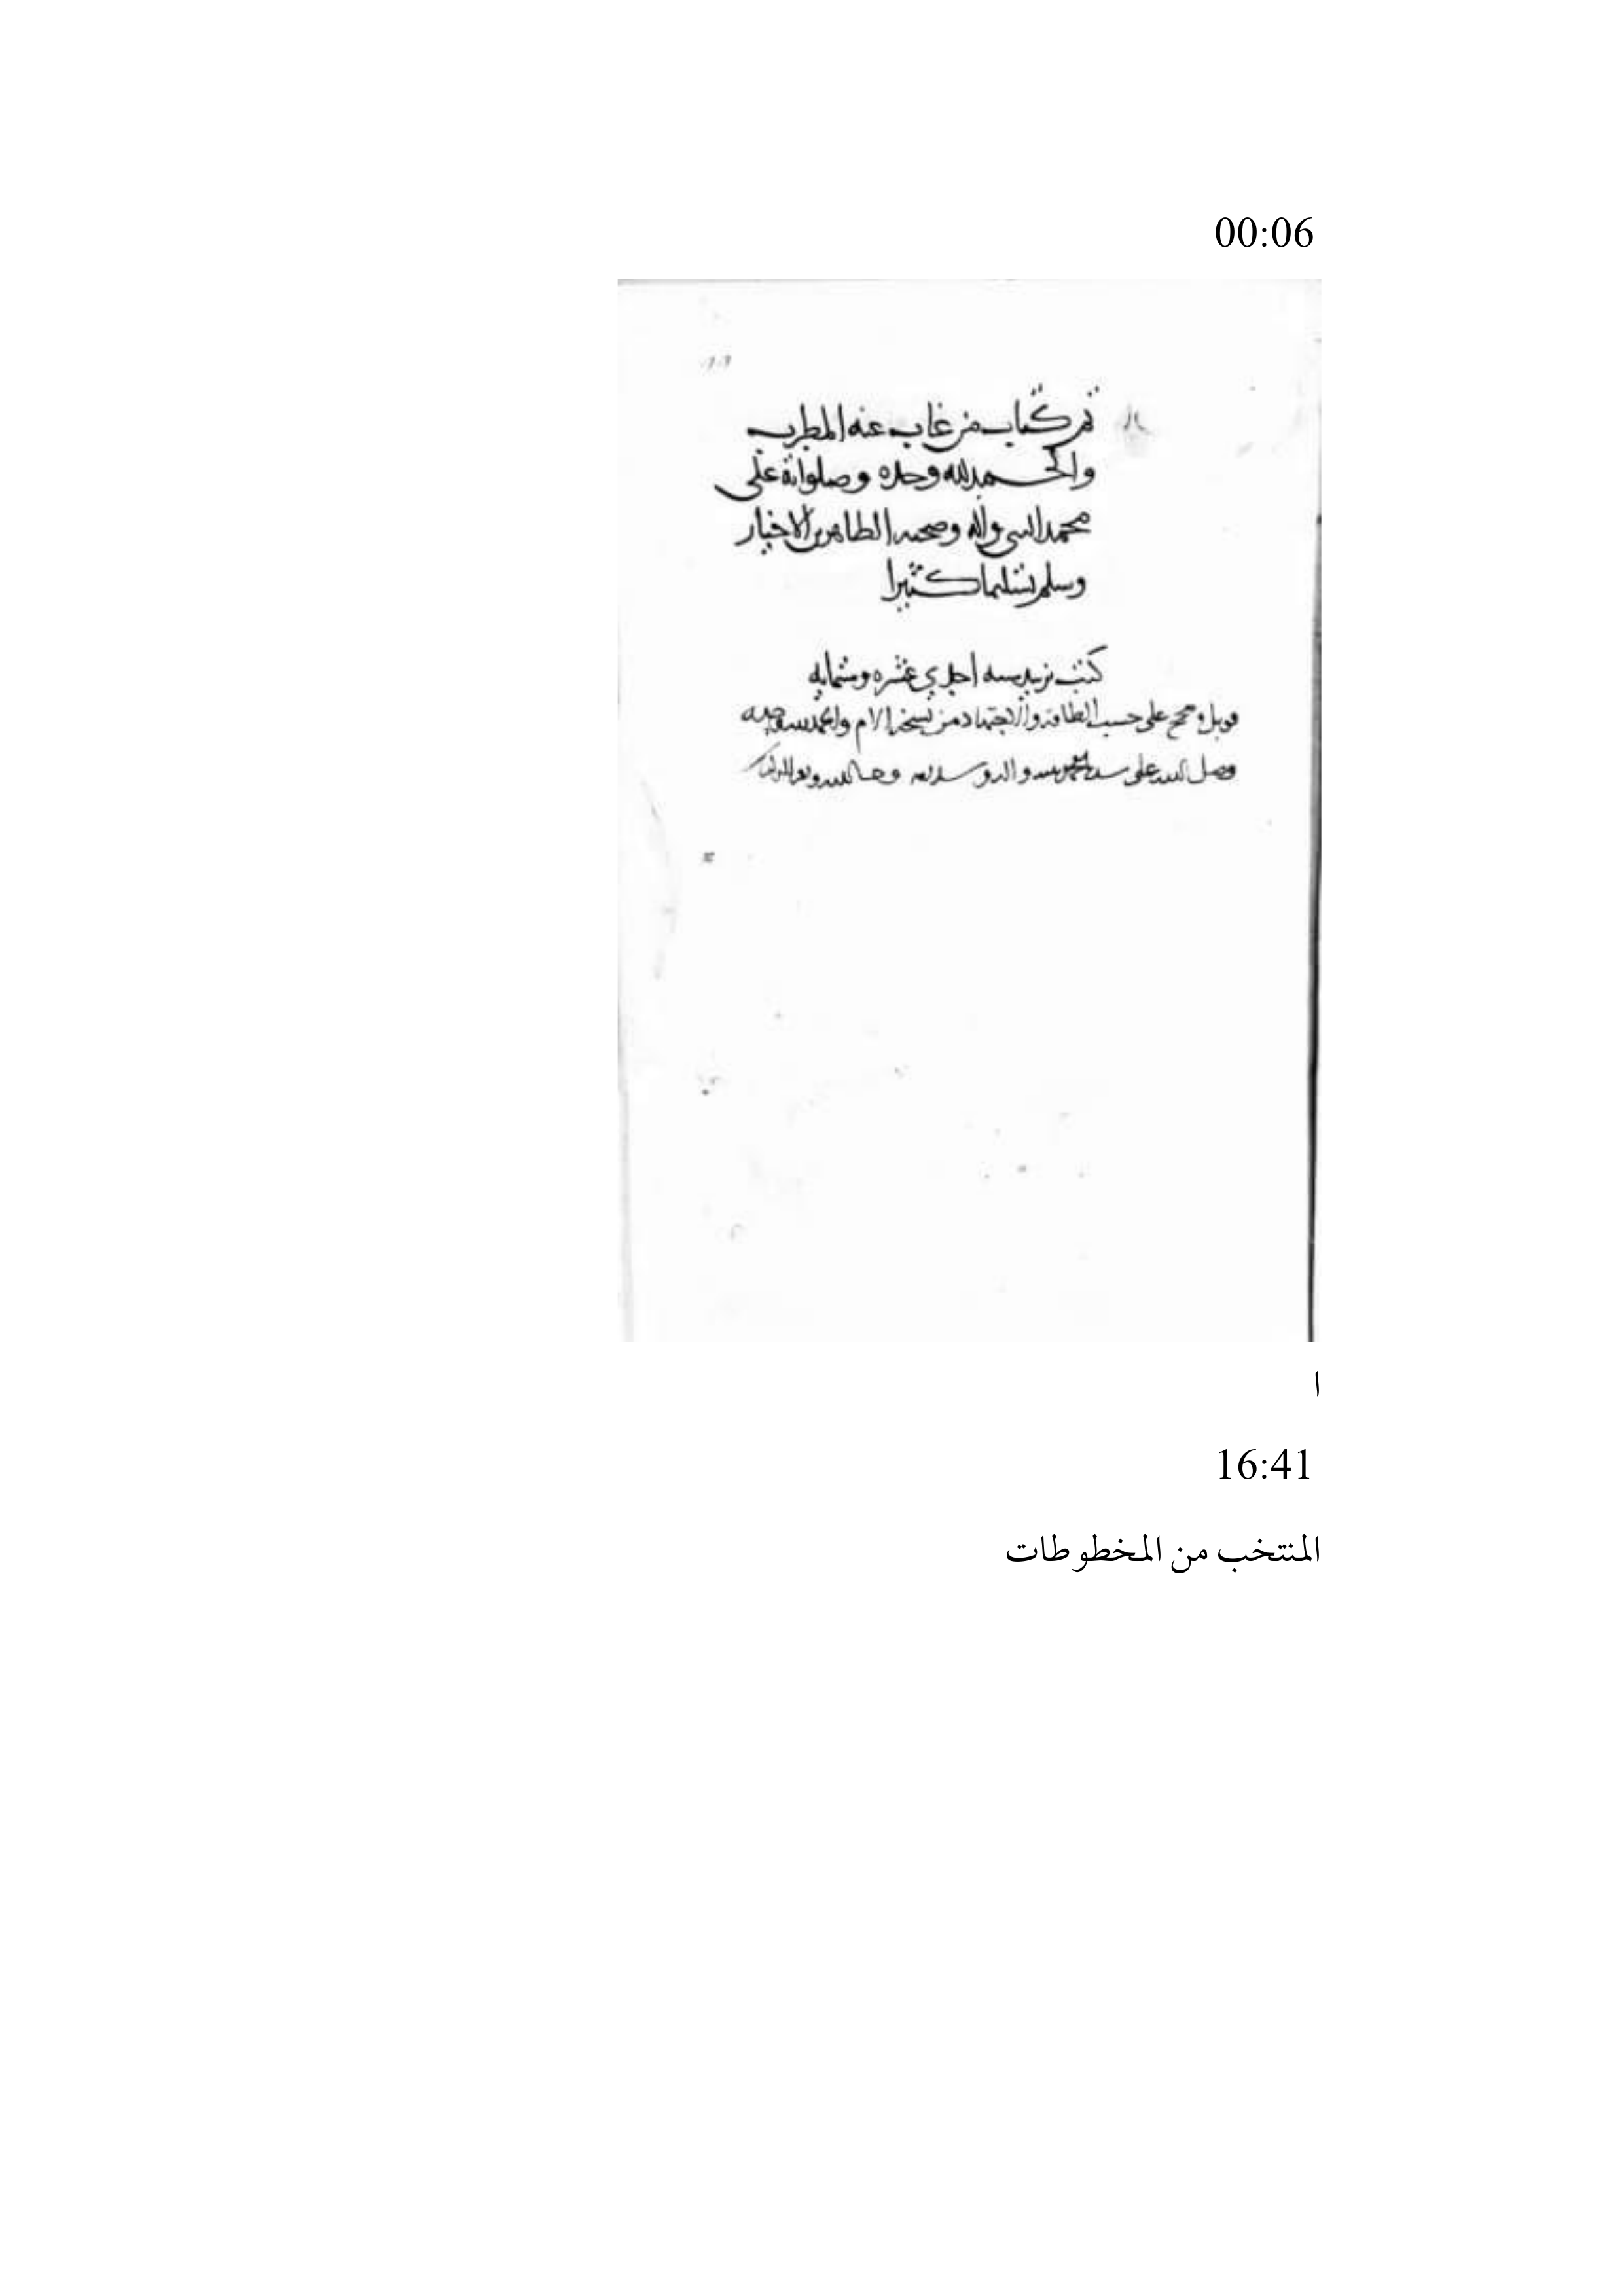 00:06
تم كتاب من غاب عنه المطرب
والحمد لله وحده وصلواته على
محمد النبي واله وصحبه الطاهرين الاخيار
وسلم تسليما كثيرا
كتب سنه احدي عشره وستمايه
قوبل وصحح على حسب الطاقة والاجتهاد من نسخة الام والحمد لله وحده
وصلى الله على سيدنا محمد واله وسلم وحسبنا الله ونعم الوكيل
ا
16:41
المنتخب من المخطوطات